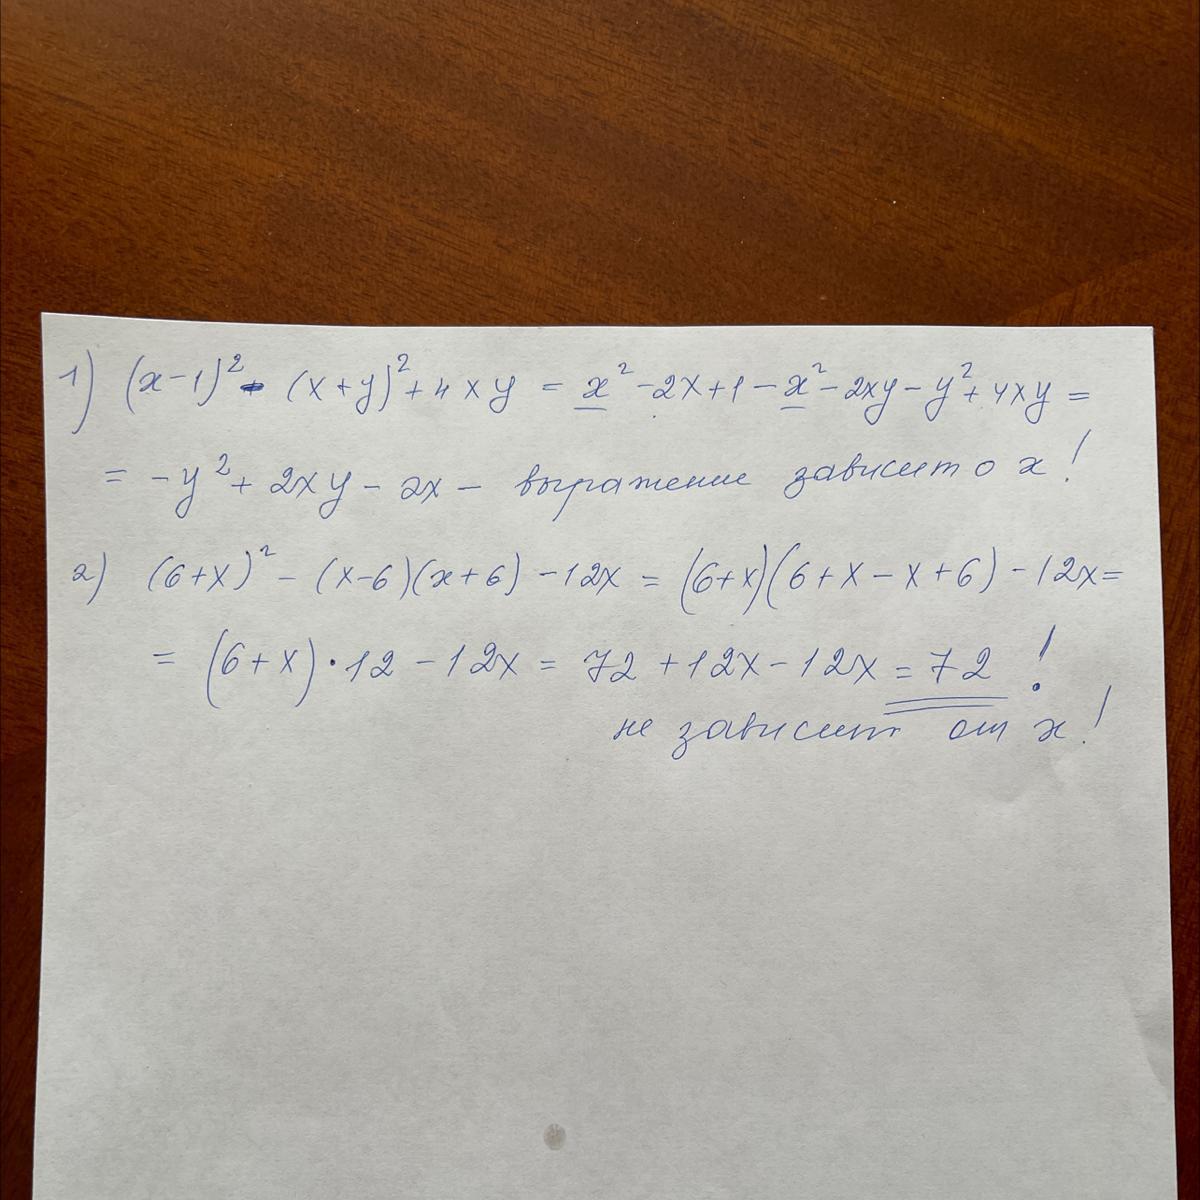 1) (x-1)² - (x+y)² + 4xy = x² - 2x + 1 - x² - 2xy - y² + 4xy =
= -y² + 2xy - 2x - выражение зависит о x!
2) (6+x)² - (x-6)(x+6) - 12x = (6+x)(6+x-x+6) - 12x =
= (6+x)·12 - 12x = 72 + 12x - 12x = 72 !
не зависит от x!